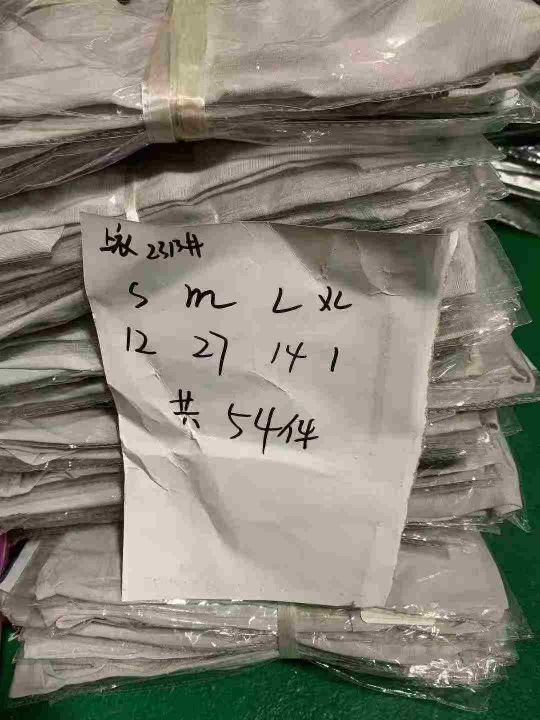 上衣 2313#
S M L XL
12 27 14 1
共 54件